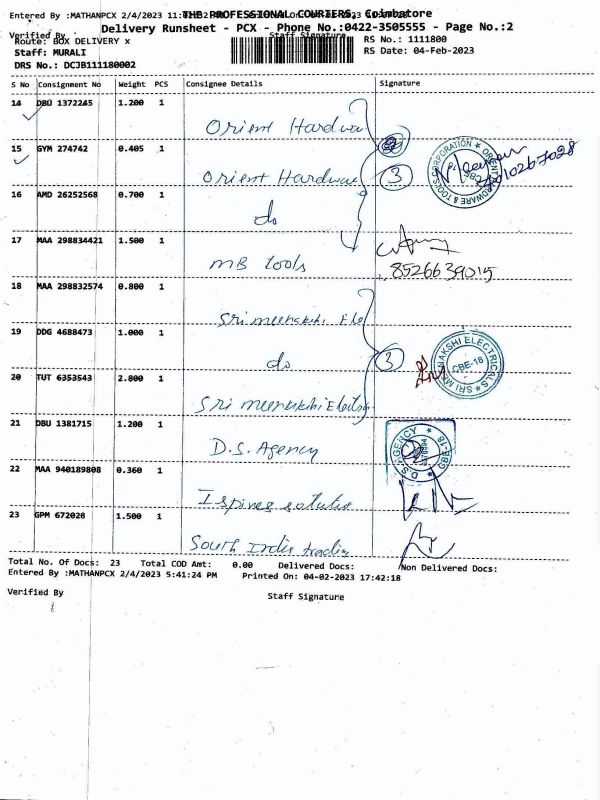 Entered By :MATHANPCX 2/4/2023
THE PROFESSIONAL COURIERS, Coimbatore
Delivery Runsheet - PCX - Phone No.:0422-3505555 - Page No.:2
Verified By
Staff Signature
Route: BOX DELIVERY x
RS No.: 1111800
Staff: MURALI
RS Date: 04-Feb-2023
DRS No.: DCJB111180002
S No Consignment No Weight PCS Consignee Details Signature
14 DBU 1372245 1.200 1
Orient Hardwa
15 GYM 274742 0.405 1
Orient Hardwa 3
16 AMD 26252568 0.700 1
do
17 MAA 298834421 1.500 1
MB tools 8526639015
18 MAA 298832574 0.800 1
Sri meenakshi Ele
19 DDG 4688473 1.000 1
do 3
SRI MEENAKSHI ELECTRICALS
CBE-18
20 TUT 6353543 2.800 1
Sri meenakshi Electri
21 DBU 1381715 1.200 1
D.S. Agency
D.S. AGENCY
CBE-18
22 MAA 940189808 0.360 1
23 GPM 672028 1.500 1
South India trading
Total No. Of Docs: 23 Total COD Amt: 0.00 Delivered Docs: Non Delivered Docs:
Entered By :MATHANPCX 2/4/2023 5:41:24 PM Printed On: 04-02-2023 17:42:18
Verified By Staff Signature